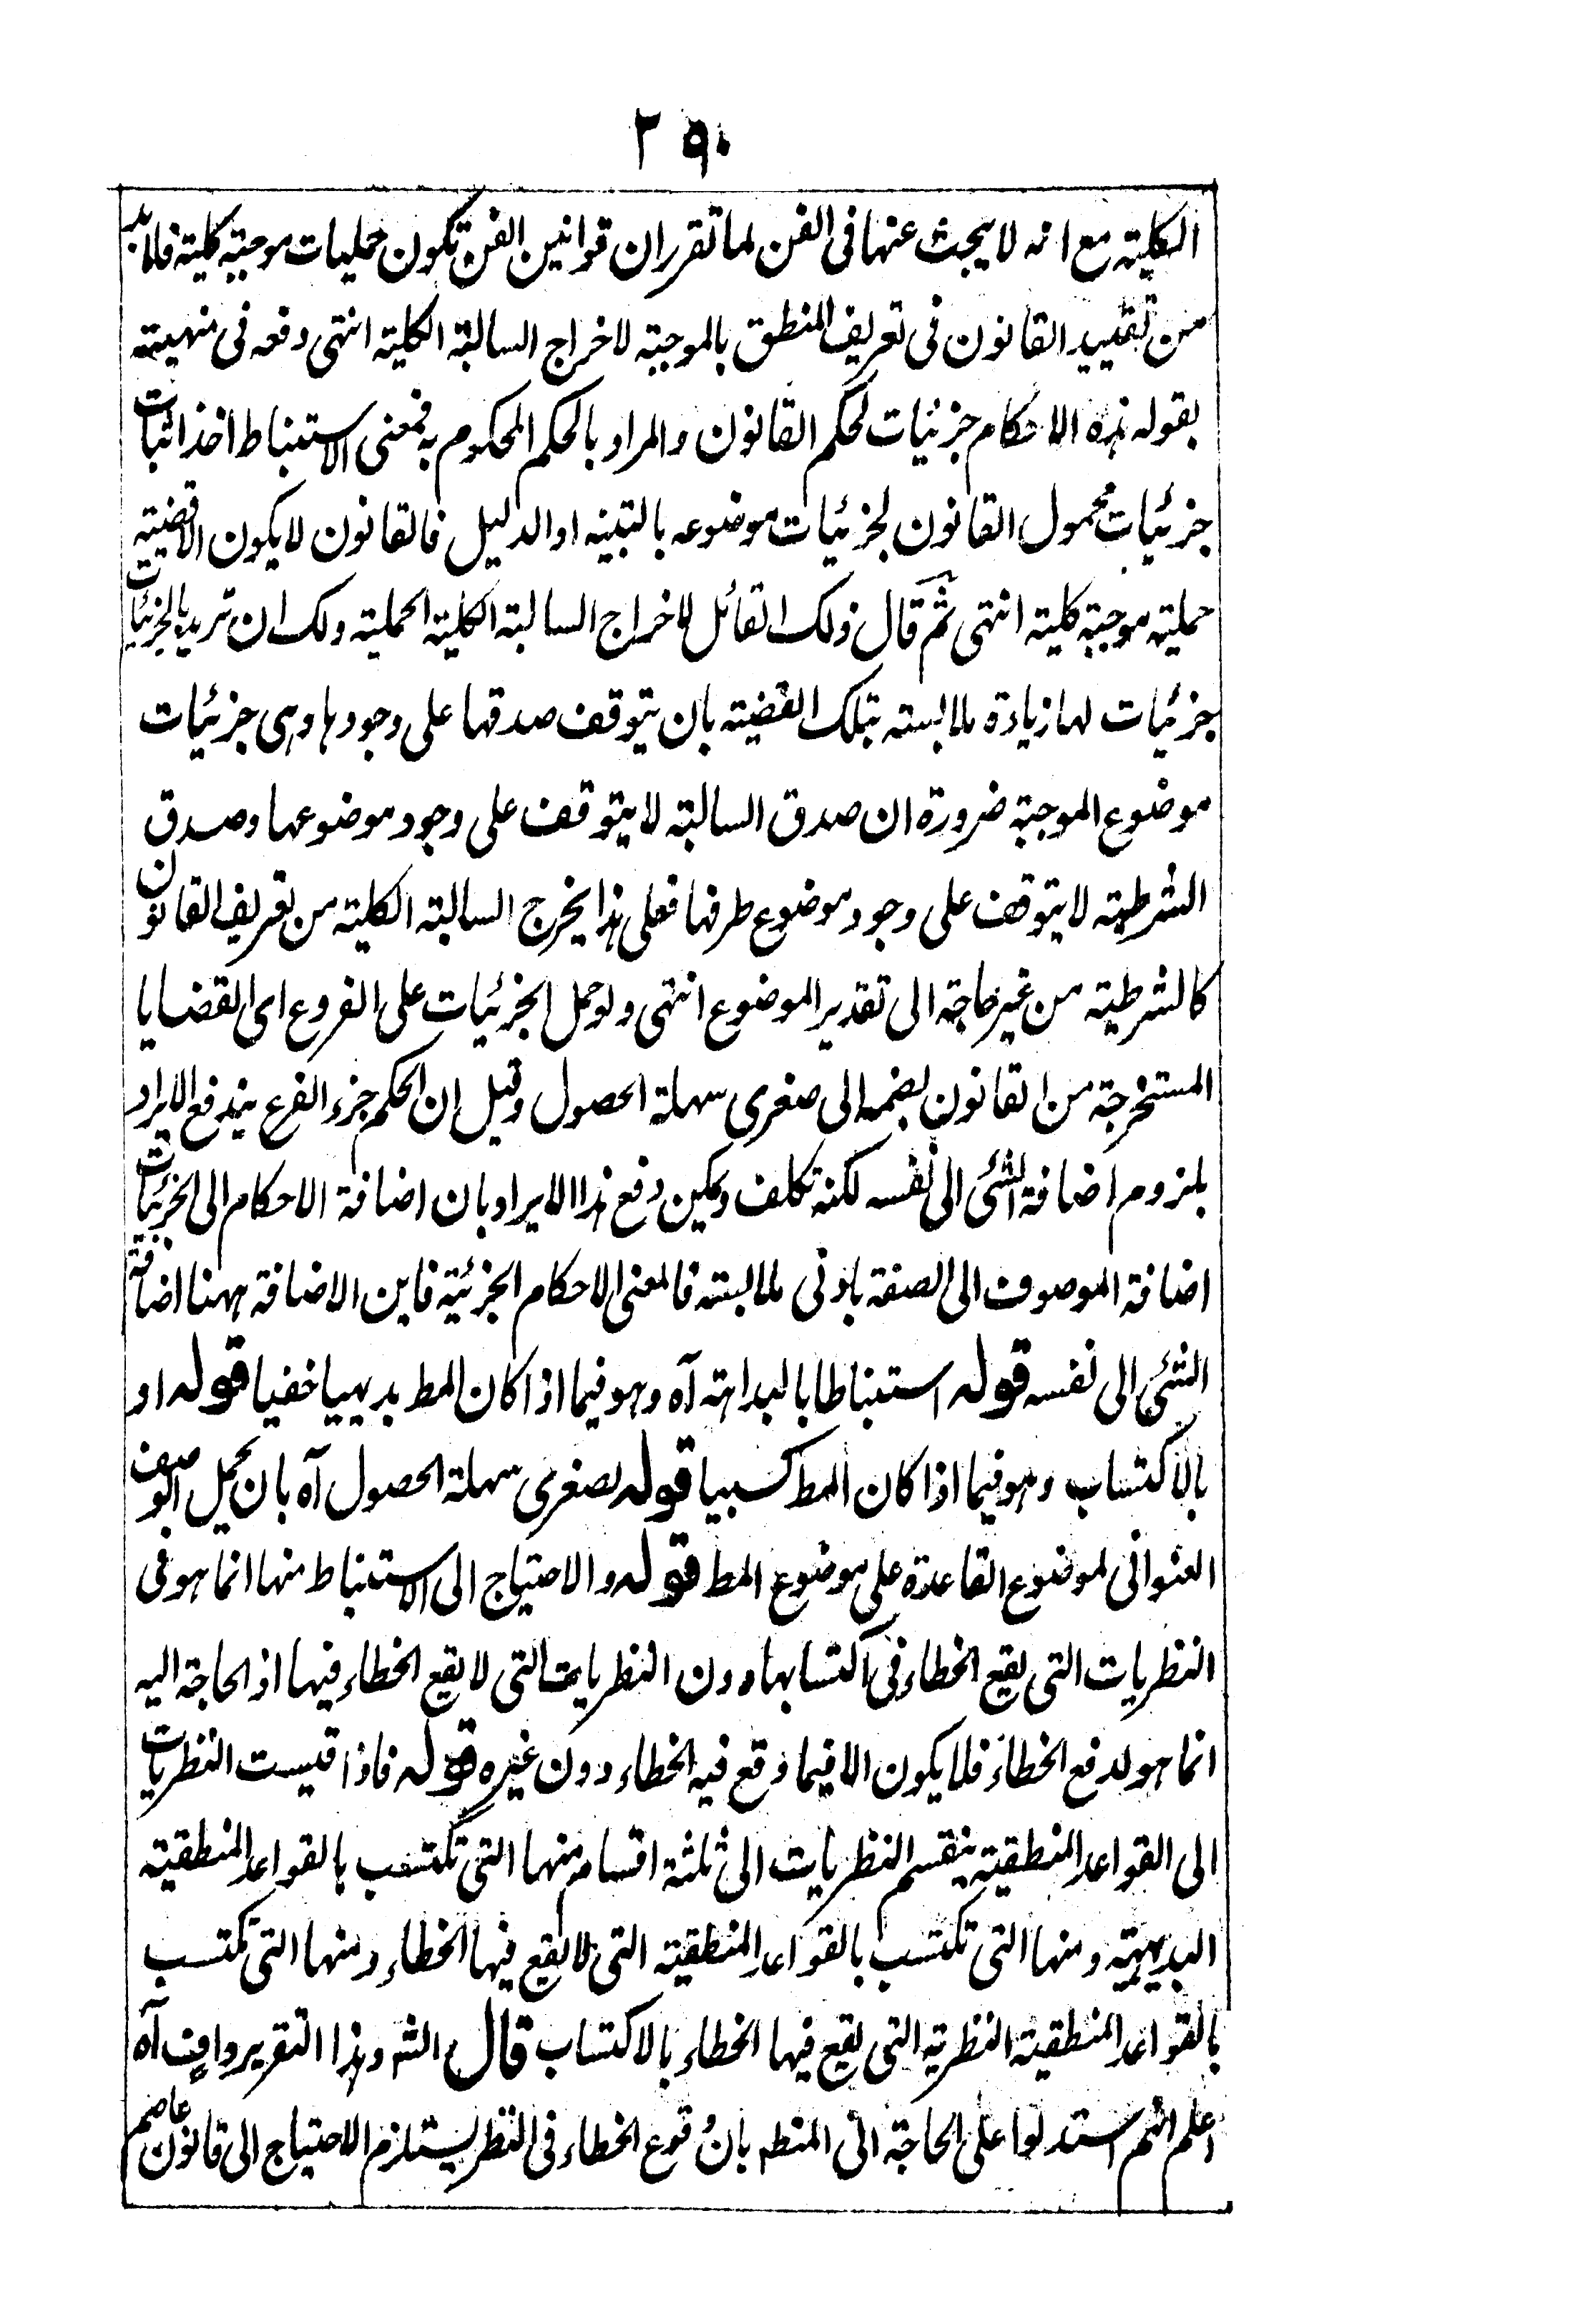 ٣٩٠
الكلية مع انه لا يبحث عنها فى الفن لما تقرر ان قوانين الفن تكون حمليات موجبة كلية فلا بد
من تقييد القانون فى تعريف المنطق بالموجبة لاخراج السالبة الكلية انتهى دفعه فى منهيته
بقوله هذه الاحكام جزئيات لحكم القانون والمراد بالحكم المحكوم به فمعنى الاستنباط اخذ اثبات
جزئيات محمول القانون لجزئيات موضوعه بالتنبيه او الدليل فالقانون لا يكون الا قضية
حملية موجبة كلية انتهى ثم قال ذلك القائل لاخراج السالبة الكلية الحملية ولك ان تريد بالجزئيات
جزئيات لها زيادة ملابسة بتلك القضية بان يتوقف صدقها على وجودها وهى جزئيات
موضوع الموجبة ضرورة ان صدق السالبة لا يتوقف على وجود موضوعها وصدق
الشرطية لا يتوقف على وجود موضوع طرفها فعلى هذا يخرج السالبة الكلية من تعريف القانون
كالشرطية من غير حاجة الى تقدير الموضوع انتهى ولو حمل الجزئيات على الفروع اى القضايا
المستخرجة من القانون بضمه الى صغرى سهلة الحصول وقيل ان الحكم جزء الفرع يندفع الايراد
بلزوم اضافة الشئ الى نفسه لكنه تكلف ويمكن دفع هذا الايراد بان اضافة الاحكام الى الجزئيات
اضافة الموصوف الى الصفة بادنى ملابسة فالمعنى الاحكام الجزئية فاين الاضافة ههنا اضافة
الشئ الى نفسه قوله استنباطا بالبداهة آه وهو فيما اذا كان المط بديهيا خفيا قوله او
بالاكتساب وهو فيما اذا كان المط كسبيا قوله بصغرى سهلة الحصول آه بان يحمل الوصف
العنوانى لموضوع القاعدة على موضوع المط قوله والاحتياج الى الاستنباط منها انما هو فى
النظريات التى يقع الخطاء فى اكتسابها دون النظريات التى لا يقع الخطاء فيها اذ الحاجة اليه
انما هو لدفع الخطاء فلا يكون الا فيما وقع فيه الخطاء دون غيره قوله فاذا قيست النظريات
الى القواعد المنطقية ينقسم النظريات الى ثلثة اقسام منها التى تكتسب بالقواعد المنطقية
البديهية ومنها التى تكتسب بالقواعد المنطقية التى لا يقع فيها الخطاء ومنها التى تكتسب
بالقواعد المنطقية النظرية التى يقع فيها الخطاء بالاكتساب قال الشه وهذا التقرير واف آه
اعلم انهم استدلوا على الحاجة الى المنطه بان وقوع الخطاء فى النظر يستلزم الاحتياج الى قانون عاصم